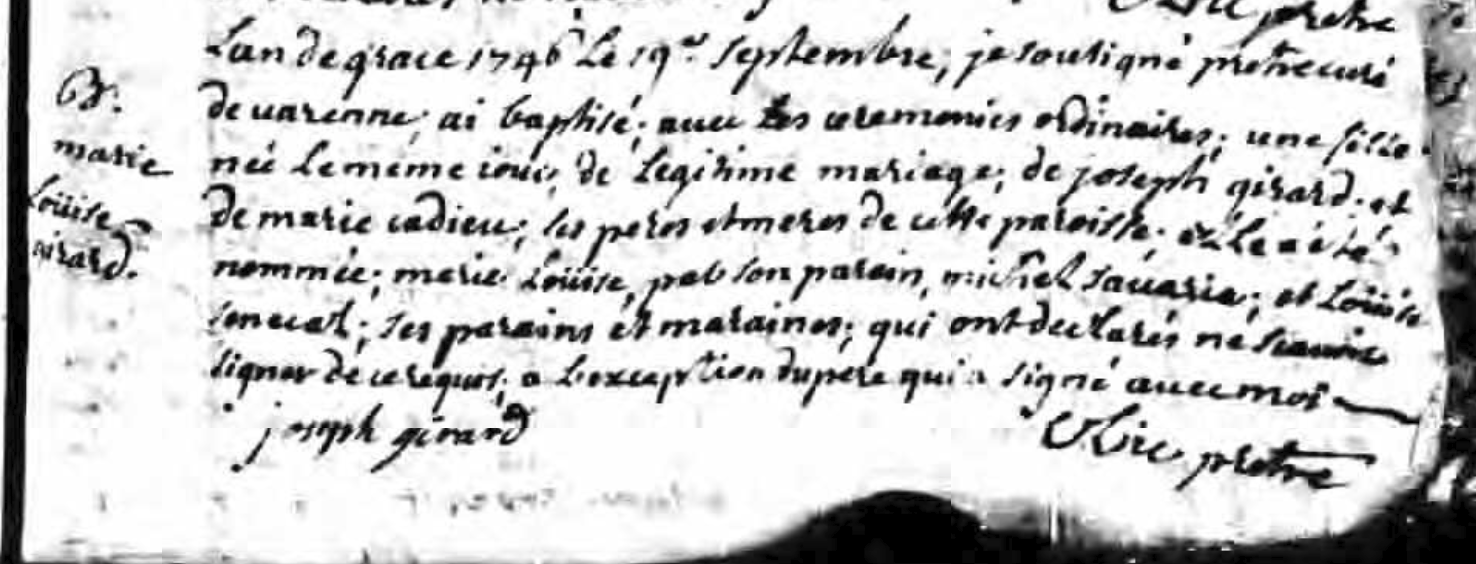 prêtre
Lan de grace 1746 Le 19er septembre; je soutigné prêtre curé
de uarenne; ai baptisé; auec les ceremonies ordinaires; une fille
née Le même iour; de Legitime mariage; de joseph girard. et
de marie cadieu; ses peres et meres de cette paroisse; elle a été
nommée; marie Loüise, par son parain, michel sauarie; et Loüise
senecal; ses parains et maraines; qui ont declarés ne scauoir
signer de ce requis; a Lexception du pere qui a signé auec moi
joseph girard
Ulric prêtre
B.
marie
Loüise
girard.